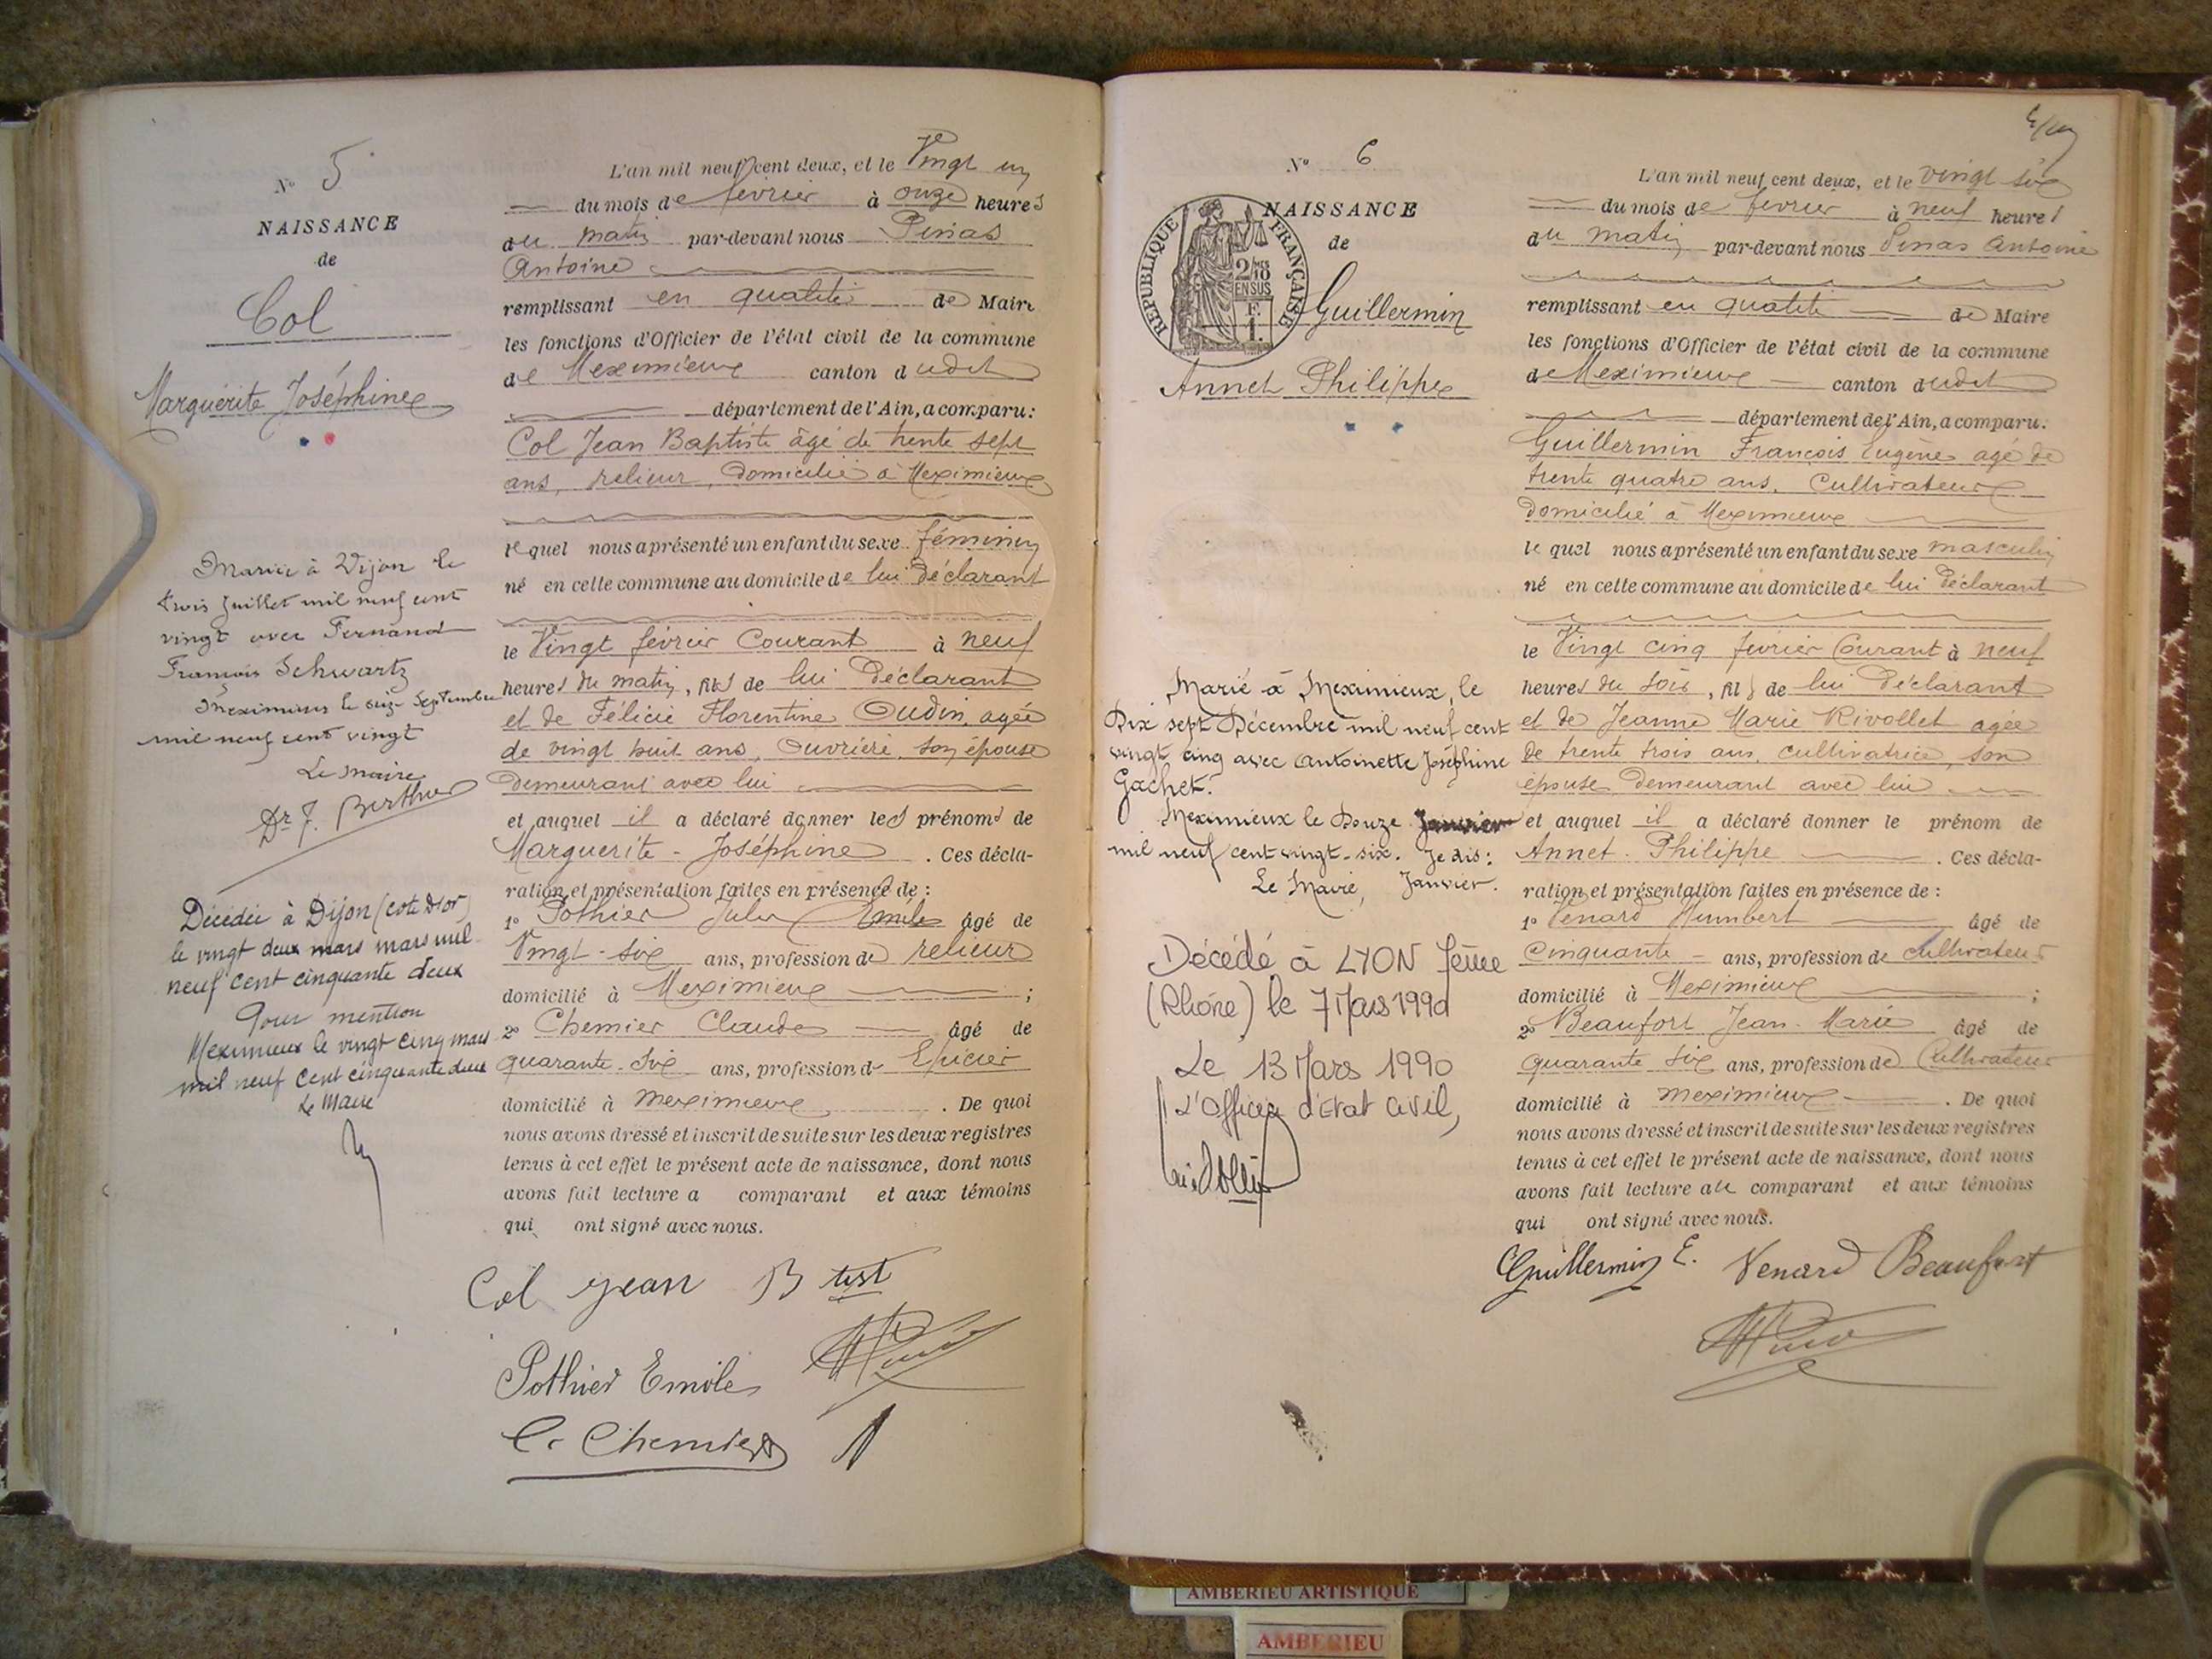 N° 5
NAISSANCE
de
Col
Marguérite Joséphine
Mariée à Dijon le
trois Juillet mil neuf cent
vingt avec Fernand
François Schwartz
Meximieux le seize Septembre
mil neuf cent vingt
Le Maire
Dr F. Berthier
Décédée à Dijon (cote d'or)
le vingt deux mars mars mil
neuf cent cinquante deux
Pour mention
Meximieux le vingt cinq mars
mil neuf cent cinquante deux
Le Maire
L'an mil neuf cent deux, et le Vingt un
du mois de février à onze heures
du matin par-devant nous Pinas
Antoine
remplissant en qualité de Maire
les fonctions d'Officier de l'état civil de la commune
de Meximieux canton dudit
département de l'Ain, a comparu:
Col Jean Baptiste âgé de trente sept
ans, relieur, domicilié à Meximieux
lequel nous a présenté un enfant du sexe féminin
né en cette commune au domicile de lui déclarant
le Vingt février Courant à neuf
heures du matin, fils de lui Déclarant
et de Félicie Florentine Oudin, agée
de vingt huit ans, Ouvrière, son épouse
demeurant avec lui
et auquel il a déclaré donner les prénoms de
Marguerite - Joséphine. Ces décla-
ration et présentation faites en présence de :
1° Pothier Jules Emile âgé de
Vingt-six ans, profession de relieur
domicilié à Meximieux ;
2° Chemier Claude âgé de
quarante-six ans, profession de Epicier
domicilié à Meximieux. De quoi
nous avons dressé et inscrit de suite sur les deux registres
tenus à cet effet le présent acte de naissance, dont nous
avons fait lecture a comparant et aux témoins
qui ont signé avec nous.
Col jean B tist
Pothier Emile
C. Chemier
N° 6
NAISSANCE
de
REPUBLIQUE FRANÇAISE
2/10
EN SUS
F.
1.
Guillermin
Annet Philippe
Marié à Meximieux, le
Dix sept Décembre mil neuf cent
vingt cinq avec Antoinette Joséphine
Gachet.
Meximieux le Douze Janvier
mil neuf cent vingt-six. Je dis:
Le Maire, Janvier.
Décédé à LYON 8ème
(Rhône) le 7 Mars 1990
Le 13 Mars 1990
L'Officier d'Etat Civil,
L'an mil neuf cent deux, et le vingt six
du mois de février à neuf heures
du matin par-devant nous Pinas Antoine
remplissant en qualité de Maire
les fonctions d'Officier de l'état civil de la commune
de Meximieux canton dudit
département de l'Ain, a comparu:
Guillermin François Eugène agé de
trente quatre ans, Cultivateur
domicilié à Meximieux
lequel nous a présenté un enfant du sexe masculin
né en cette commune au domicile de lui déclarant
le Vingt cinq février Courant à neuf
heures du soir, fils de lui déclarant
et de Jeanne Marie Rivollet agée
de trente trois ans, cultivatrice, son
épouse demeurant avec lui
et auquel il a déclaré donner le prénom de
Annet. Philippe. Ces décla-
ration et présentation faites en présence de :
1° Venard Humbert âgé de
Cinquante - ans, profession de Cultivateur
domicilié à Meximieux ;
2° Beaufort Jean-Marie âgé de
quarante six ans, profession de Cultivateur
domicilié à Meximieux. De quoi
nous avons dressé et inscrit de suite sur les deux registres
tenus à cet effet le présent acte de naissance, dont nous
avons fait lecture au comparant et aux témoins
qui ont signé avec nous.
Guillermin E. Venard Beaufort
AMBERIEU ARTISTIQUE
AMBERIEU